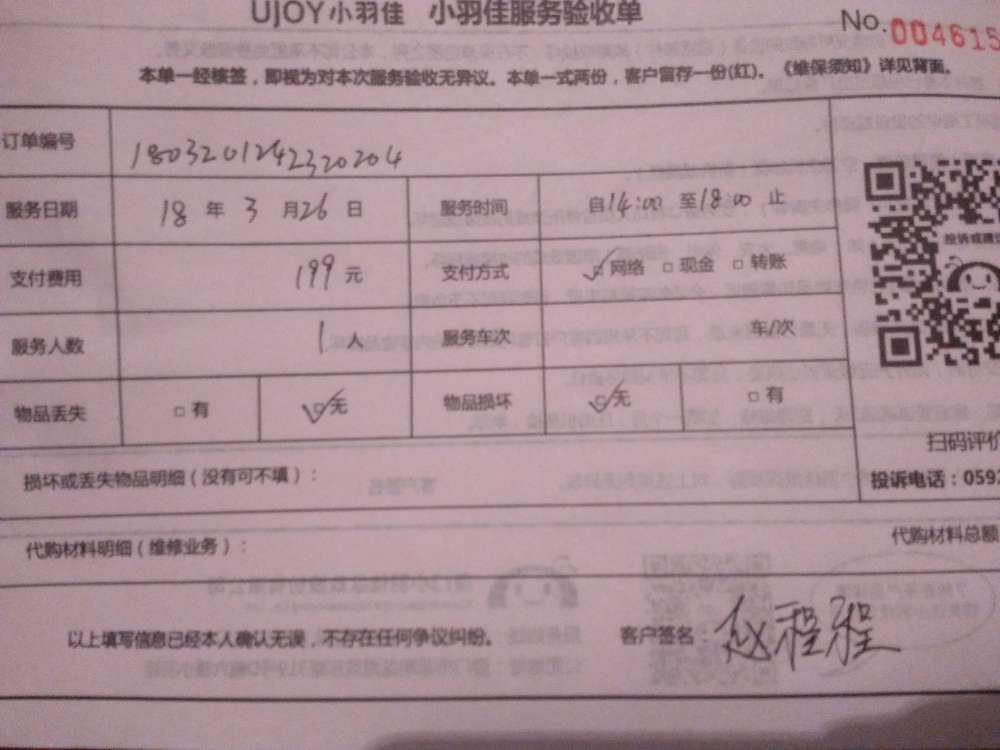 UJOY小羽佳 小羽佳服务验收单
No.004615
本单一经核签，即视为对本次服务验收无异议。本单一式两份，客户留存一份(红)。《维保须知》详见背面。
订单编号 1803201242320204
服务日期 18 年 3 月 26 日 服务时间 自14:00 至18:00 止
投诉或建议
支付费用 199 元 支付方式 ☑网络 □现金 □转账
服务人数 1 人 服务车次 车/次
物品丢失 □有 ☑无 物品损坏 ☑无 □有
扫码评价
损坏或丢失物品明细（没有可不填）： 投诉电话：0592
代购材料明细（维修业务）： 代购材料总额
以上填写信息已经本人确认无误，不存在任何争议纠纷。 客户签名：赵程程